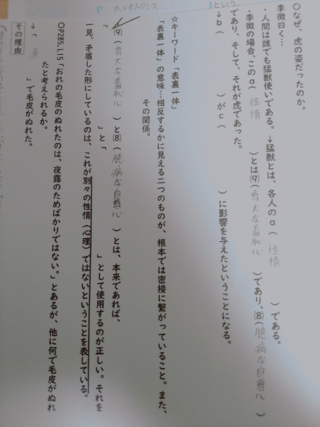 〇なぜ、虎の姿だったのか。
李徴曰く…
・人間は誰でも猛獣使いである。→猛獣とは、各人のa(　性情　)である。
・李徴の場合、このa(　性情　)とは⑨(尊大な羞恥心)であり、⑧(臆病な自尊心)
であり、そして、それが虎であった。
→b(　　　)がc(　　　)に影響を与えたということになる。
☆キーワード「表裏一体」
「表裏一体」の意味…相反するかに見える二つのものが、根本では密接に繋がっていること。また、
その関係。
⑨(尊大な羞恥心)と⑧(臆病な自尊心)とは、本来であれば、
「　　　」と「　　　」として使用するのが正しい。それを
一見、矛盾した形にしているのは、これが別々の性情(心理)ではないということを表している。
〇P285, L15「おれの毛皮のぬれたのは、夜露のためばかりではない。」とあるが、他に何で毛皮がぬれ
たと考えられるか。
→「　　　」で毛皮がぬれた。
その理由